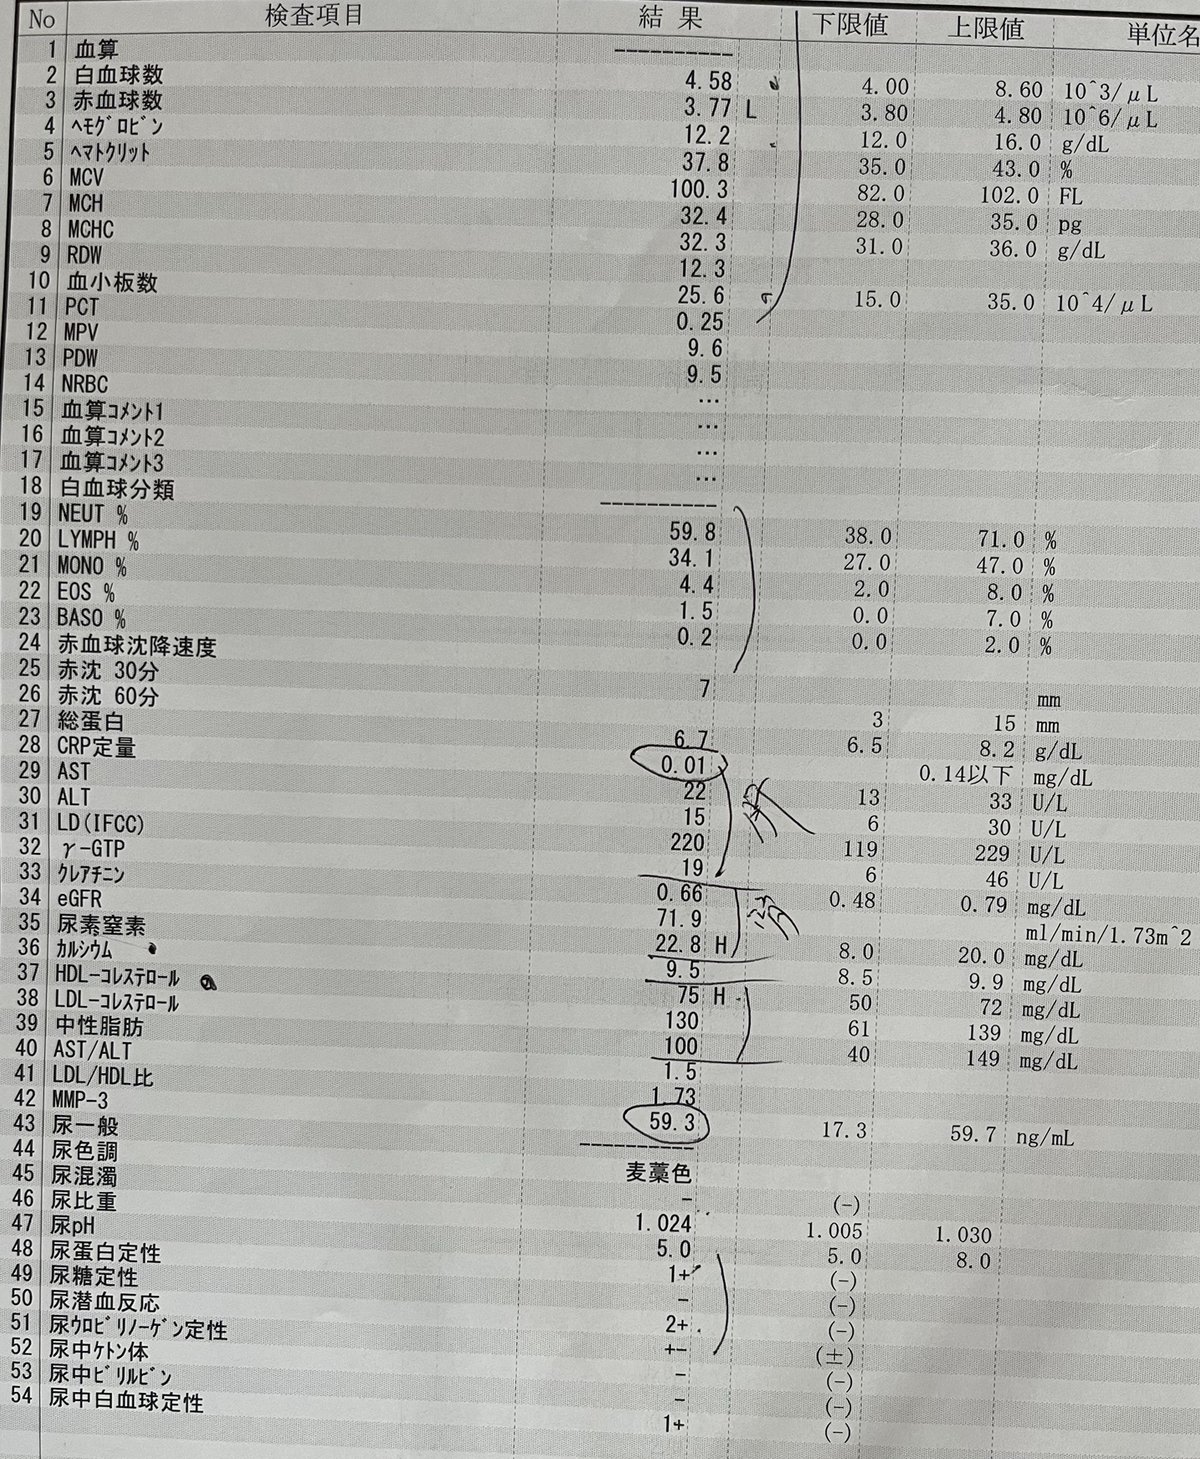 No 検査項目 結果 下限値 上限値 単位名
1 血算 ----------
2 白血球数 4.58 4.00 8.60 10^3/μL
3 赤血球数 3.77 L 3.80 4.80 10^6/μL
4 ﾍﾓｸﾞﾛﾋﾞﾝ 12.2 12.0 16.0 g/dL
5 ﾍﾏﾄｸﾘｯﾄ 37.8 35.0 43.0 %
6 MCV 100.3 82.0 102.0 FL
7 MCH 32.4 28.0 35.0 pg
8 MCHC 32.3 31.0 36.0 g/dL
9 RDW 12.3
10 血小板数 25.6 15.0 35.0 10^4/μL
11 PCT 0.25
12 MPV 9.6
13 PDW 9.5
14 NRBC ...
15 血算ｺﾒﾝﾄ1 ...
16 血算ｺﾒﾝﾄ2 ...
17 血算ｺﾒﾝﾄ3 ...
18 白血球分類 ----------
19 NEUT % 59.8 38.0 71.0 %
20 LYMPH % 34.1 27.0 47.0 %
21 MONO % 4.4 2.0 8.0 %
22 EOS % 1.5 0.0 7.0 %
23 BASO % 0.2 0.0 2.0 %
24 赤血球沈降速度
25 赤沈 30分 7 mm
26 赤沈 60分 3 15 mm
27 総蛋白 6.7 6.5 8.2 g/dL
28 CRP定量 0.01 0.14以下 mg/dL
29 AST 22 13 33 U/L
30 ALT 15 6 30 U/L
31 LD(IFCC) 220 119 229 U/L
32 γ-GTP 19 6 46 U/L
33 ｸﾚｱﾁﾆﾝ 0.66 0.48 0.79 mg/dL
34 eGFR 71.9 ml/min/1.73m^2
35 尿素窒素 22.8 H 8.0 20.0 mg/dL
36 ｶﾙｼｳﾑ 9.5 8.5 9.9 mg/dL
37 HDL-ｺﾚｽﾃﾛｰﾙ 75 H 50 72 mg/dL
38 LDL-ｺﾚｽﾃﾛｰﾙ 130 61 139 mg/dL
39 中性脂肪 100 40 149 mg/dL
40 AST/ALT 1.5
41 LDL/HDL比 1.73
42 MMP-3 59.3 17.3 59.7 ng/mL
43 尿一般 ----------
44 尿色調 麦藁色
45 尿混濁 - (-)
46 尿比重 1.024 1.005 1.030
47 尿pH 5.0 5.0 8.0
48 尿蛋白定性 1+ (-)
49 尿糖定性 - (-)
50 尿潜血反応 2+ (-)
51 尿ｳﾛﾋﾞﾘﾉｰｹﾞﾝ定性 +- (±)
52 尿中ｹﾄﾝ体 - (-)
53 尿中ﾋﾞﾘﾙﾋﾞﾝ - (-)
54 尿中白血球定性 1+ (-)